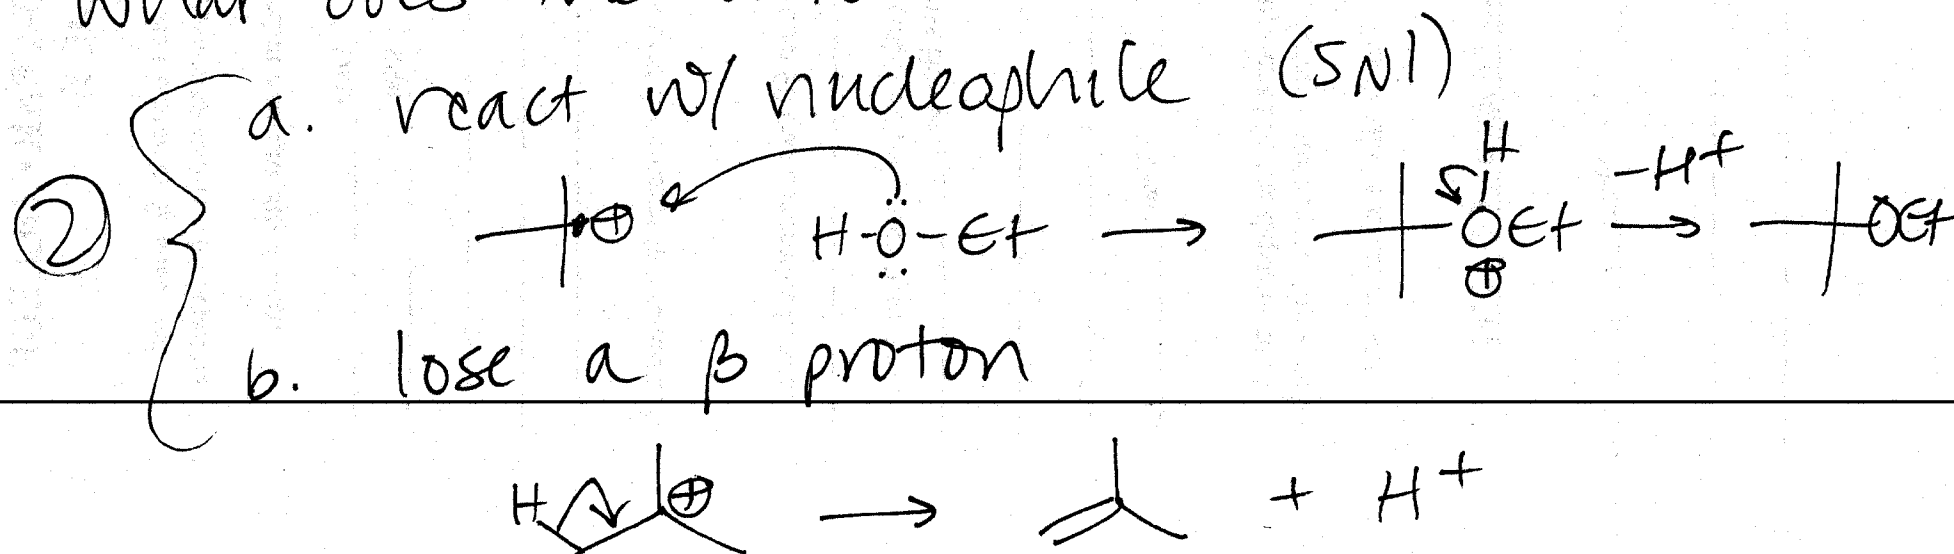 a. react w/ nucleophile (SN1)
② ⊕ H-Ö-Et → H OEt ⊕ -H+ → OEt
b. lose a β proton
H ⊕ → + H+